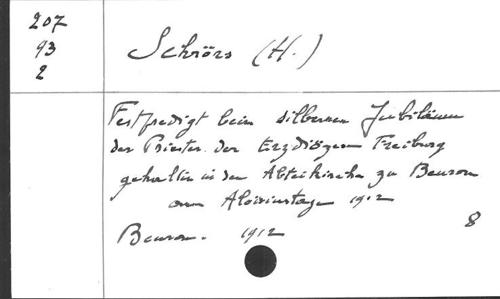 207
93
2
Schrörs (H.)
Festpredigt beim silbernen Jubiläum
der Priester der Erzdiözese Freiburg
gehalten in der Abteikirche zu Beuron
am Aloisiustage 1912
Beuron. 1912
8